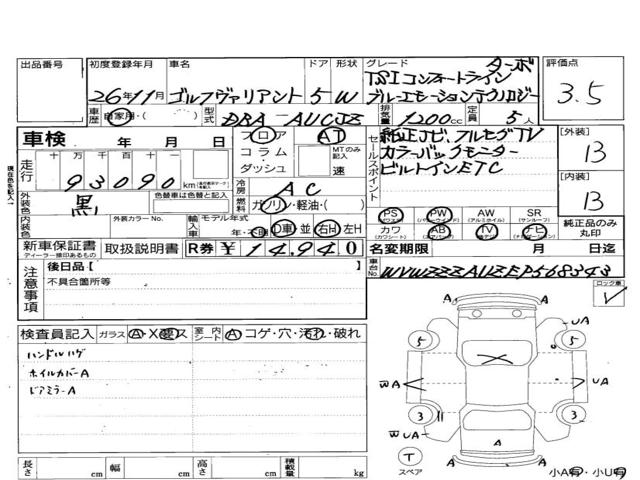 出品番号
初度登録年月 車名 ドア 形状 グレード 評価点
ターボ
TSI コンフォートライン
26年11月 ゴルフヴァリアント 5 W ブルーエモーションテクノロジー
3.5
車歴 自家用・( ) 型式 DBA-AUCJZ 排気量 1200cc 定員 5人
車検 年 月 日
フロア AT
コラム MTのみ記入
ダッシュ 速
セールスポイント
純正ナビ、フルセグTV
カラーバックモニター
ビルトインETC
[外装]
B
[内装]
B
現在色を記入→
走行 十万千百十一
93090 km
冷房 AC
外装色 黒 色替車は色替と記入
燃料 ガソリン・軽油・( )
内装色 外装カラーNo. 輸入車 モデル年式 年・不明 D車 並 右H 左H
PS PW AW SR
(パワステ) (パワーウインド) (アルミホイル) (サンルーフ)
カワ AB TV ナビ
(カワシート) (エアバッグ) (テレビ) (ナビゲーション)
純正品のみ丸印
新車保証書 取扱説明書 R券 ¥14,940
ディーラー捺印あるもの
名変期限 月 日迄
車台No. WVWZZZAUZEP568343
注意事項
後日品・[ ]
不具合箇所等
ロック車
レ
検査員記入 ガラス A・X・要・ス 室内シート A コゲ・穴・汚れ・破れ
ハンドルハゲ
ホイルカバーA
ドアミラーA
A A
UA
5 5
X
WA UA
3 3
WUA
A
T
スペア
A A
長さ cm 幅 cm 高さ cm 積載量 kg
小A有・小U有